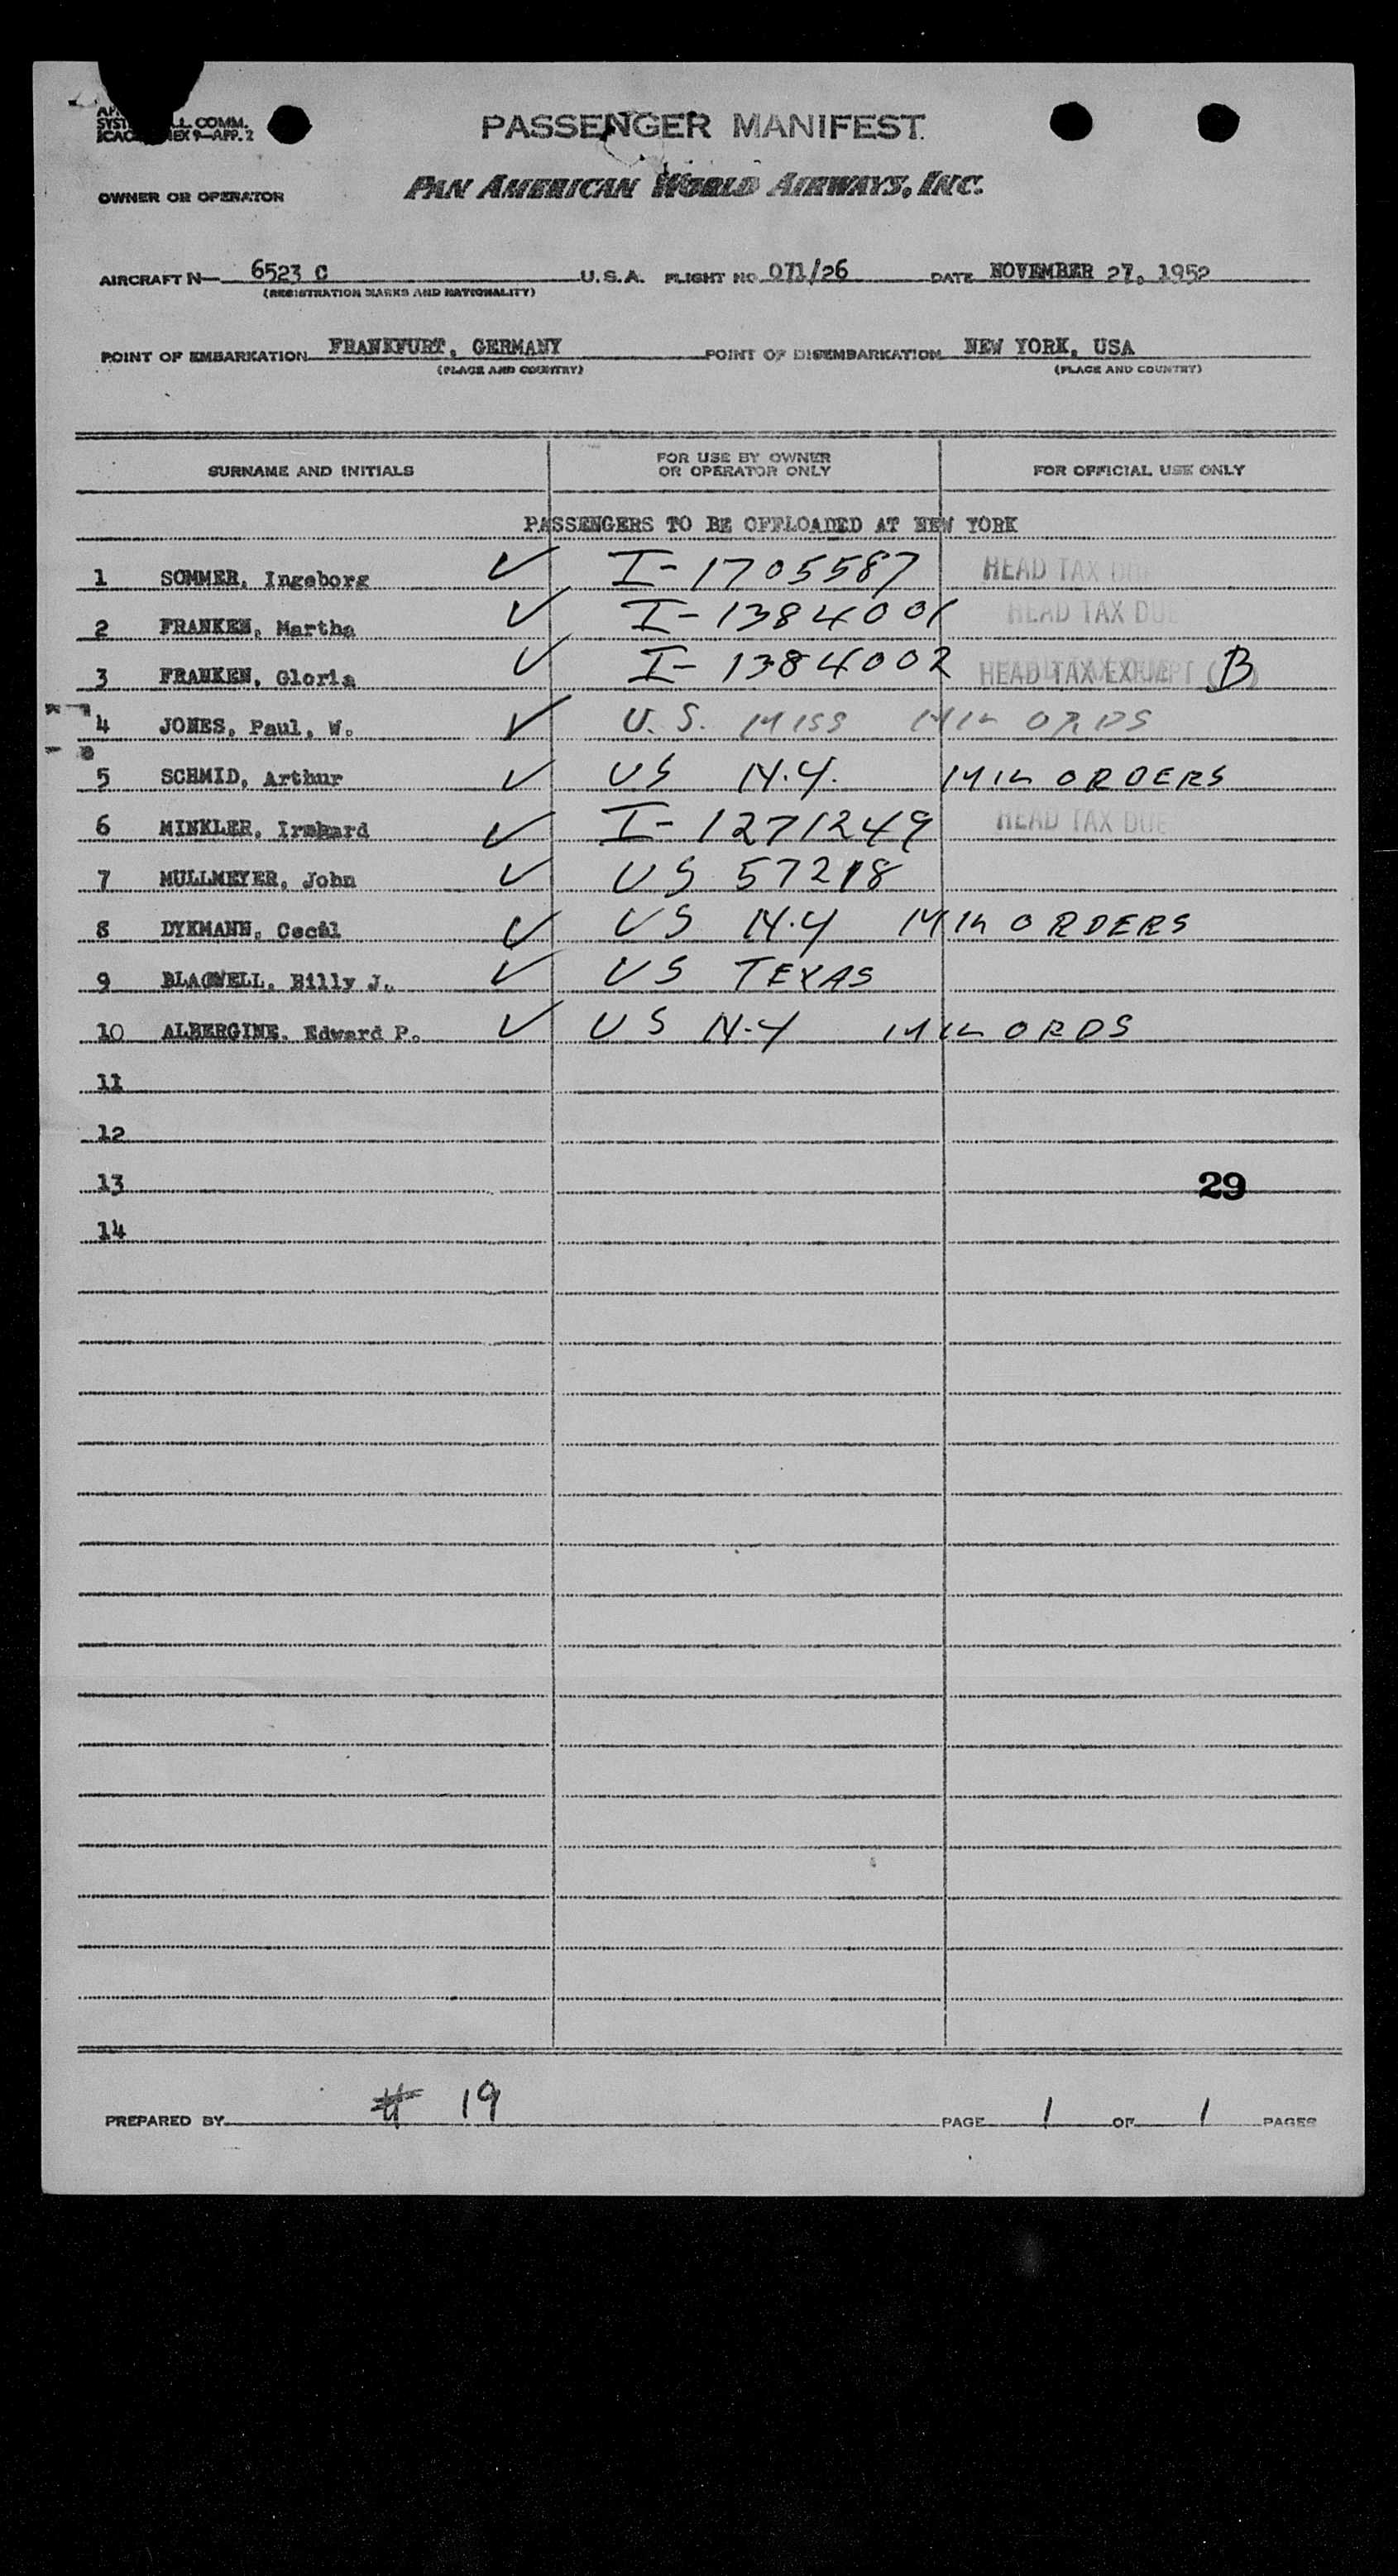 L. COMM.
ICAO ANNEX 9—APP. 2
PASSENGER MANIFEST
OWNER OR OPERATOR PAN AMERICAN WORLD AIRWAYS, INC.
AIRCRAFT N— 6523 C U.S.A. FLIGHT NO. 071/26 DATE NOVEMBER 27, 1952
(REGISTRATION MARKS AND NATIONALITY)
POINT OF EMBARKATION FRANKFURT, GERMANY POINT OF DISEMBARKATION NEW YORK, USA
(PLACE AND COUNTRY) (PLACE AND COUNTRY)
SURNAME AND INITIALS FOR USE BY OWNER OR OPERATOR ONLY FOR OFFICIAL USE ONLY
PASSENGERS TO BE OFFLOADED AT NEW YORK
1 SOMMER, Ingeborg ✓ I-1705587 HEAD TAX DUE
2 FRANKEN, Martha ✓ I-1384001 HEAD TAX DUE
3 FRANKEN, Gloria ✓ I-1384002 HEAD TAX EXEMPT (B)
4 JONES, Paul, W. ✓ U.S. MISS MIL ORDS
5 SCHMID, Arthur ✓ US N.Y. MIL ORDERS
6 MINKLER, Irmhard ✓ I-1271249 HEAD TAX DUE
7 MULLMEYER, John ✓ US 57218
8 DYKMANN, Cecil ✓ US N.Y MIL ORDERS
9 BLAGWELL, Billy J. ✓ US TEXAS
10 ALBERGINE, Edward P. ✓ US N.Y MIL ORDS
11
12
13 29
14
PREPARED BY # 19 PAGE 1 OF 1 PAGES